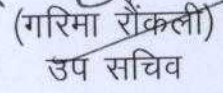 (गरिमा रौंकली)
उप सचिव